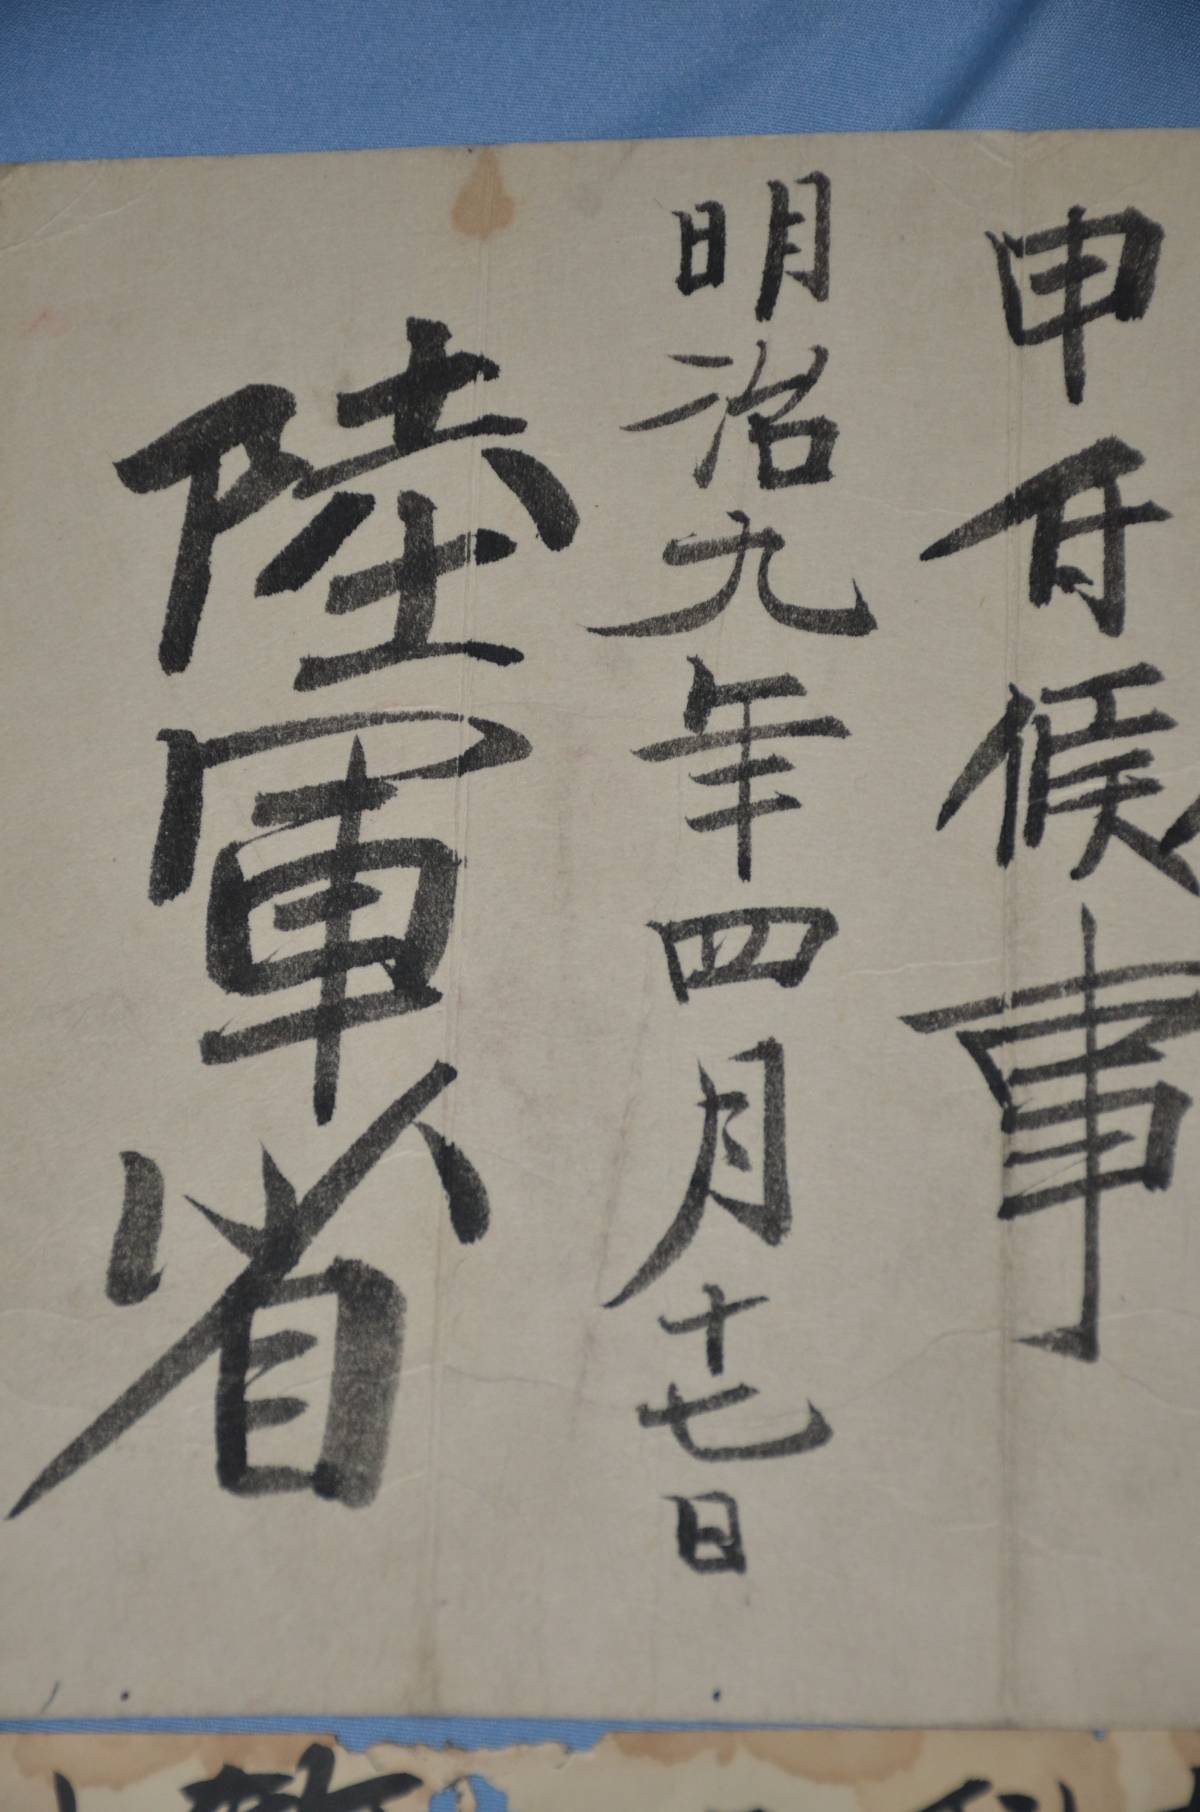 申付候事
明治九年四月十七日
陸軍省